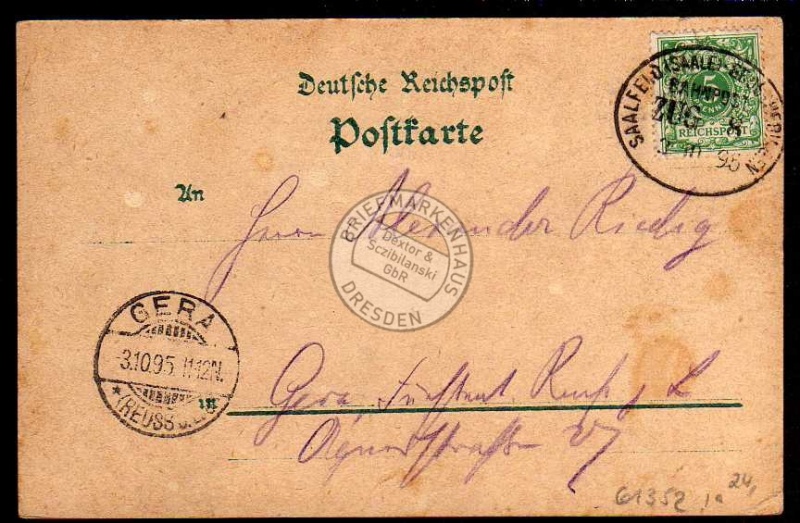 Deutsche Reichspost
Postkarte
5
REICHSPOST
SAALFELD (SAALE)
BAHNPOST
ZUG
95
An
Herrn Alexander Riedig
BRIEFMARKENHAUS
Dextor &
Sczibilanski
GbR
DRESDEN
GERA
3.10.95. 11-12N.
* (REUSS j.L.)
in Gera, Fürstent. Reuß j. L
Agnesstraße 27
61352
24,